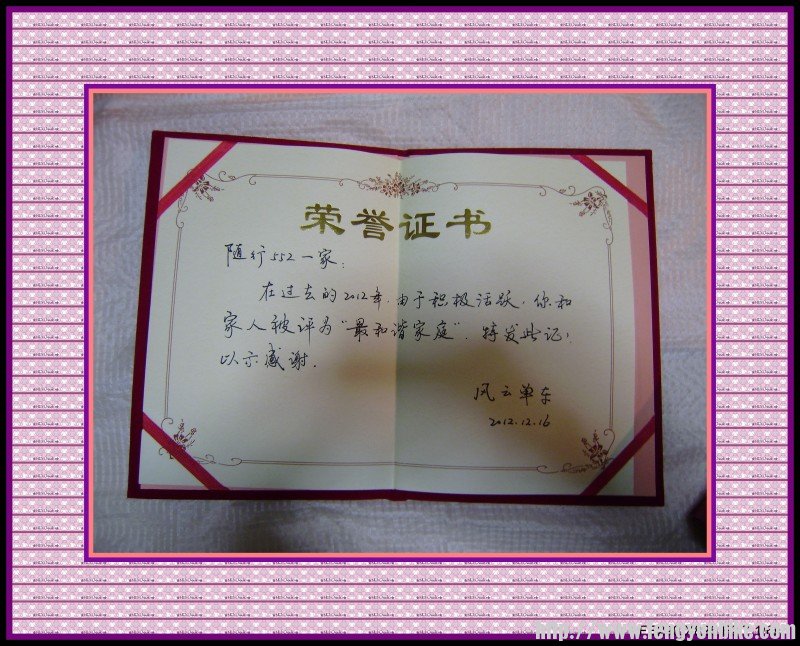 荣誉证书
随行552一家：
在过去的2012年，由于积极活跃，你和
家人被评为“最和谐家庭”，特发此证，
以示感谢．
风云单车
2012.12.16